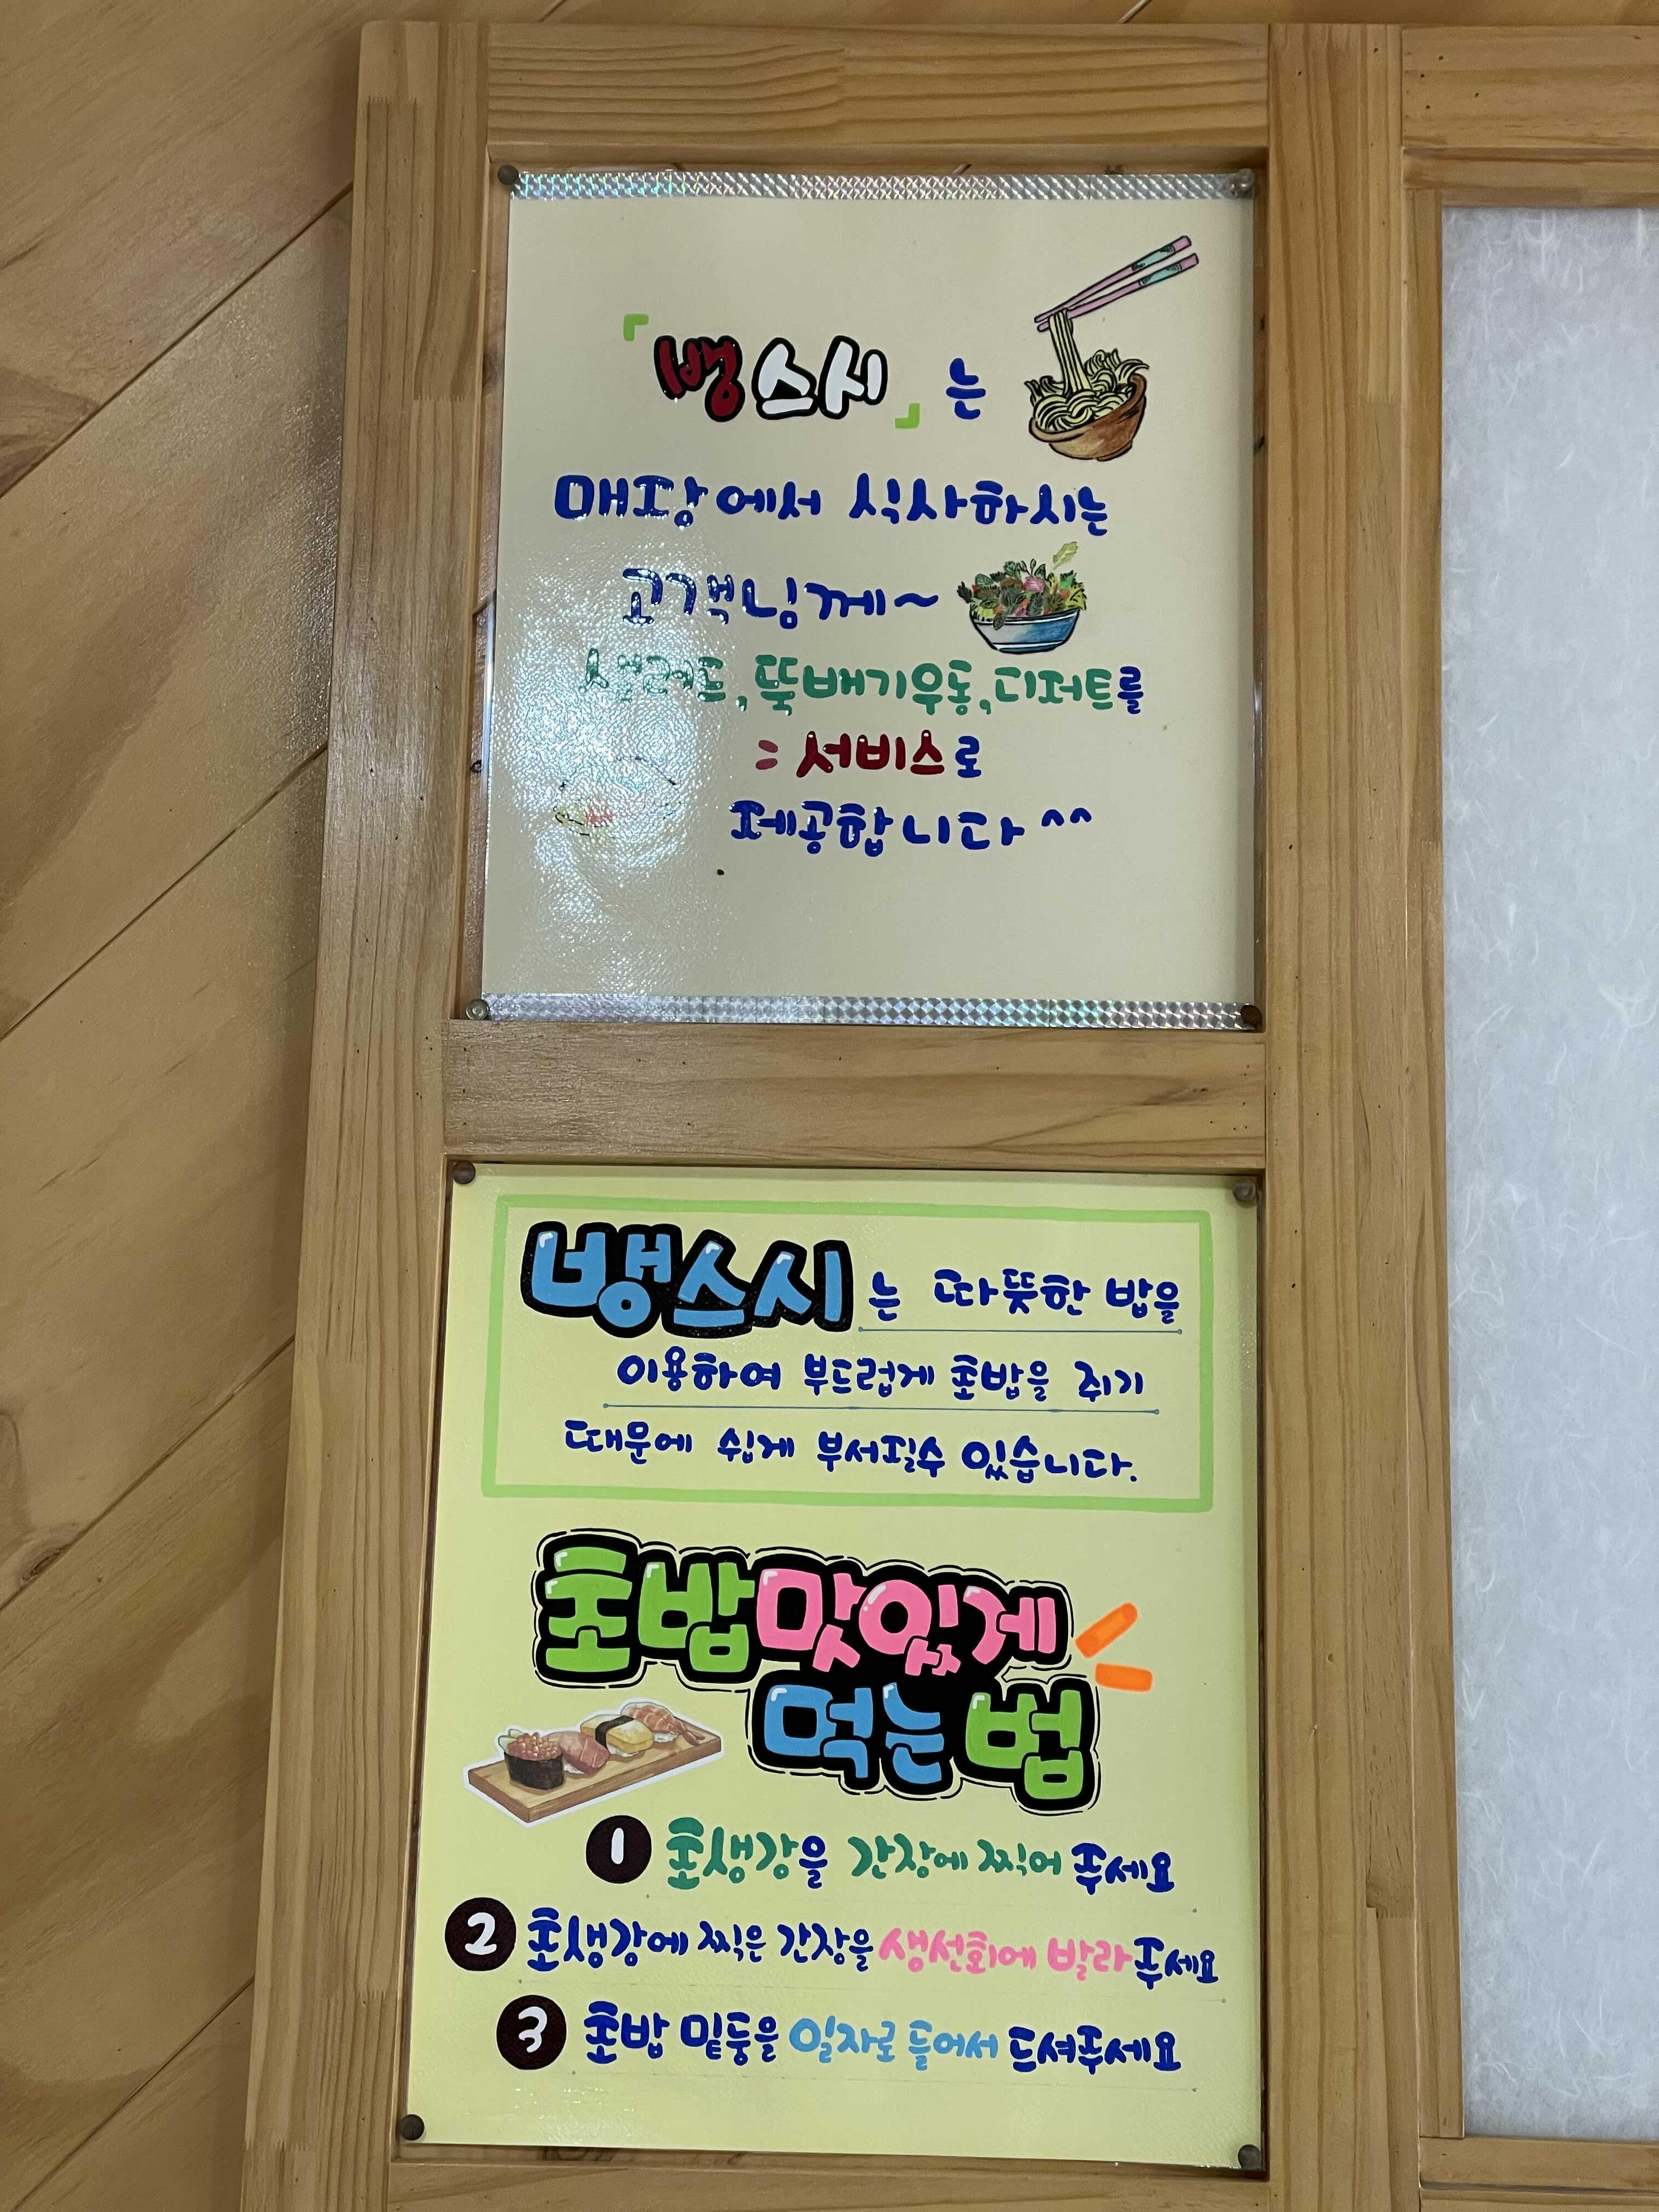 「뱅스시」는
매장에서 식사하시는
고객님께~
샐러드,뚝배기우동,디저트를
=서비스로
제공합니다^^
뱅스시는 따뜻한 밥을
이용하여 부드럽게 초밥을 쥐기
때문에 쉽게 부서질수 있습니다.
초밥맛있게
먹는법
1 초생강을 간장에 찍어 주세요
2 초생강에 찍은 간장을 생선회에 발라주세요
3 초밥 밑둥을 일자로 들어서 드셔주세요